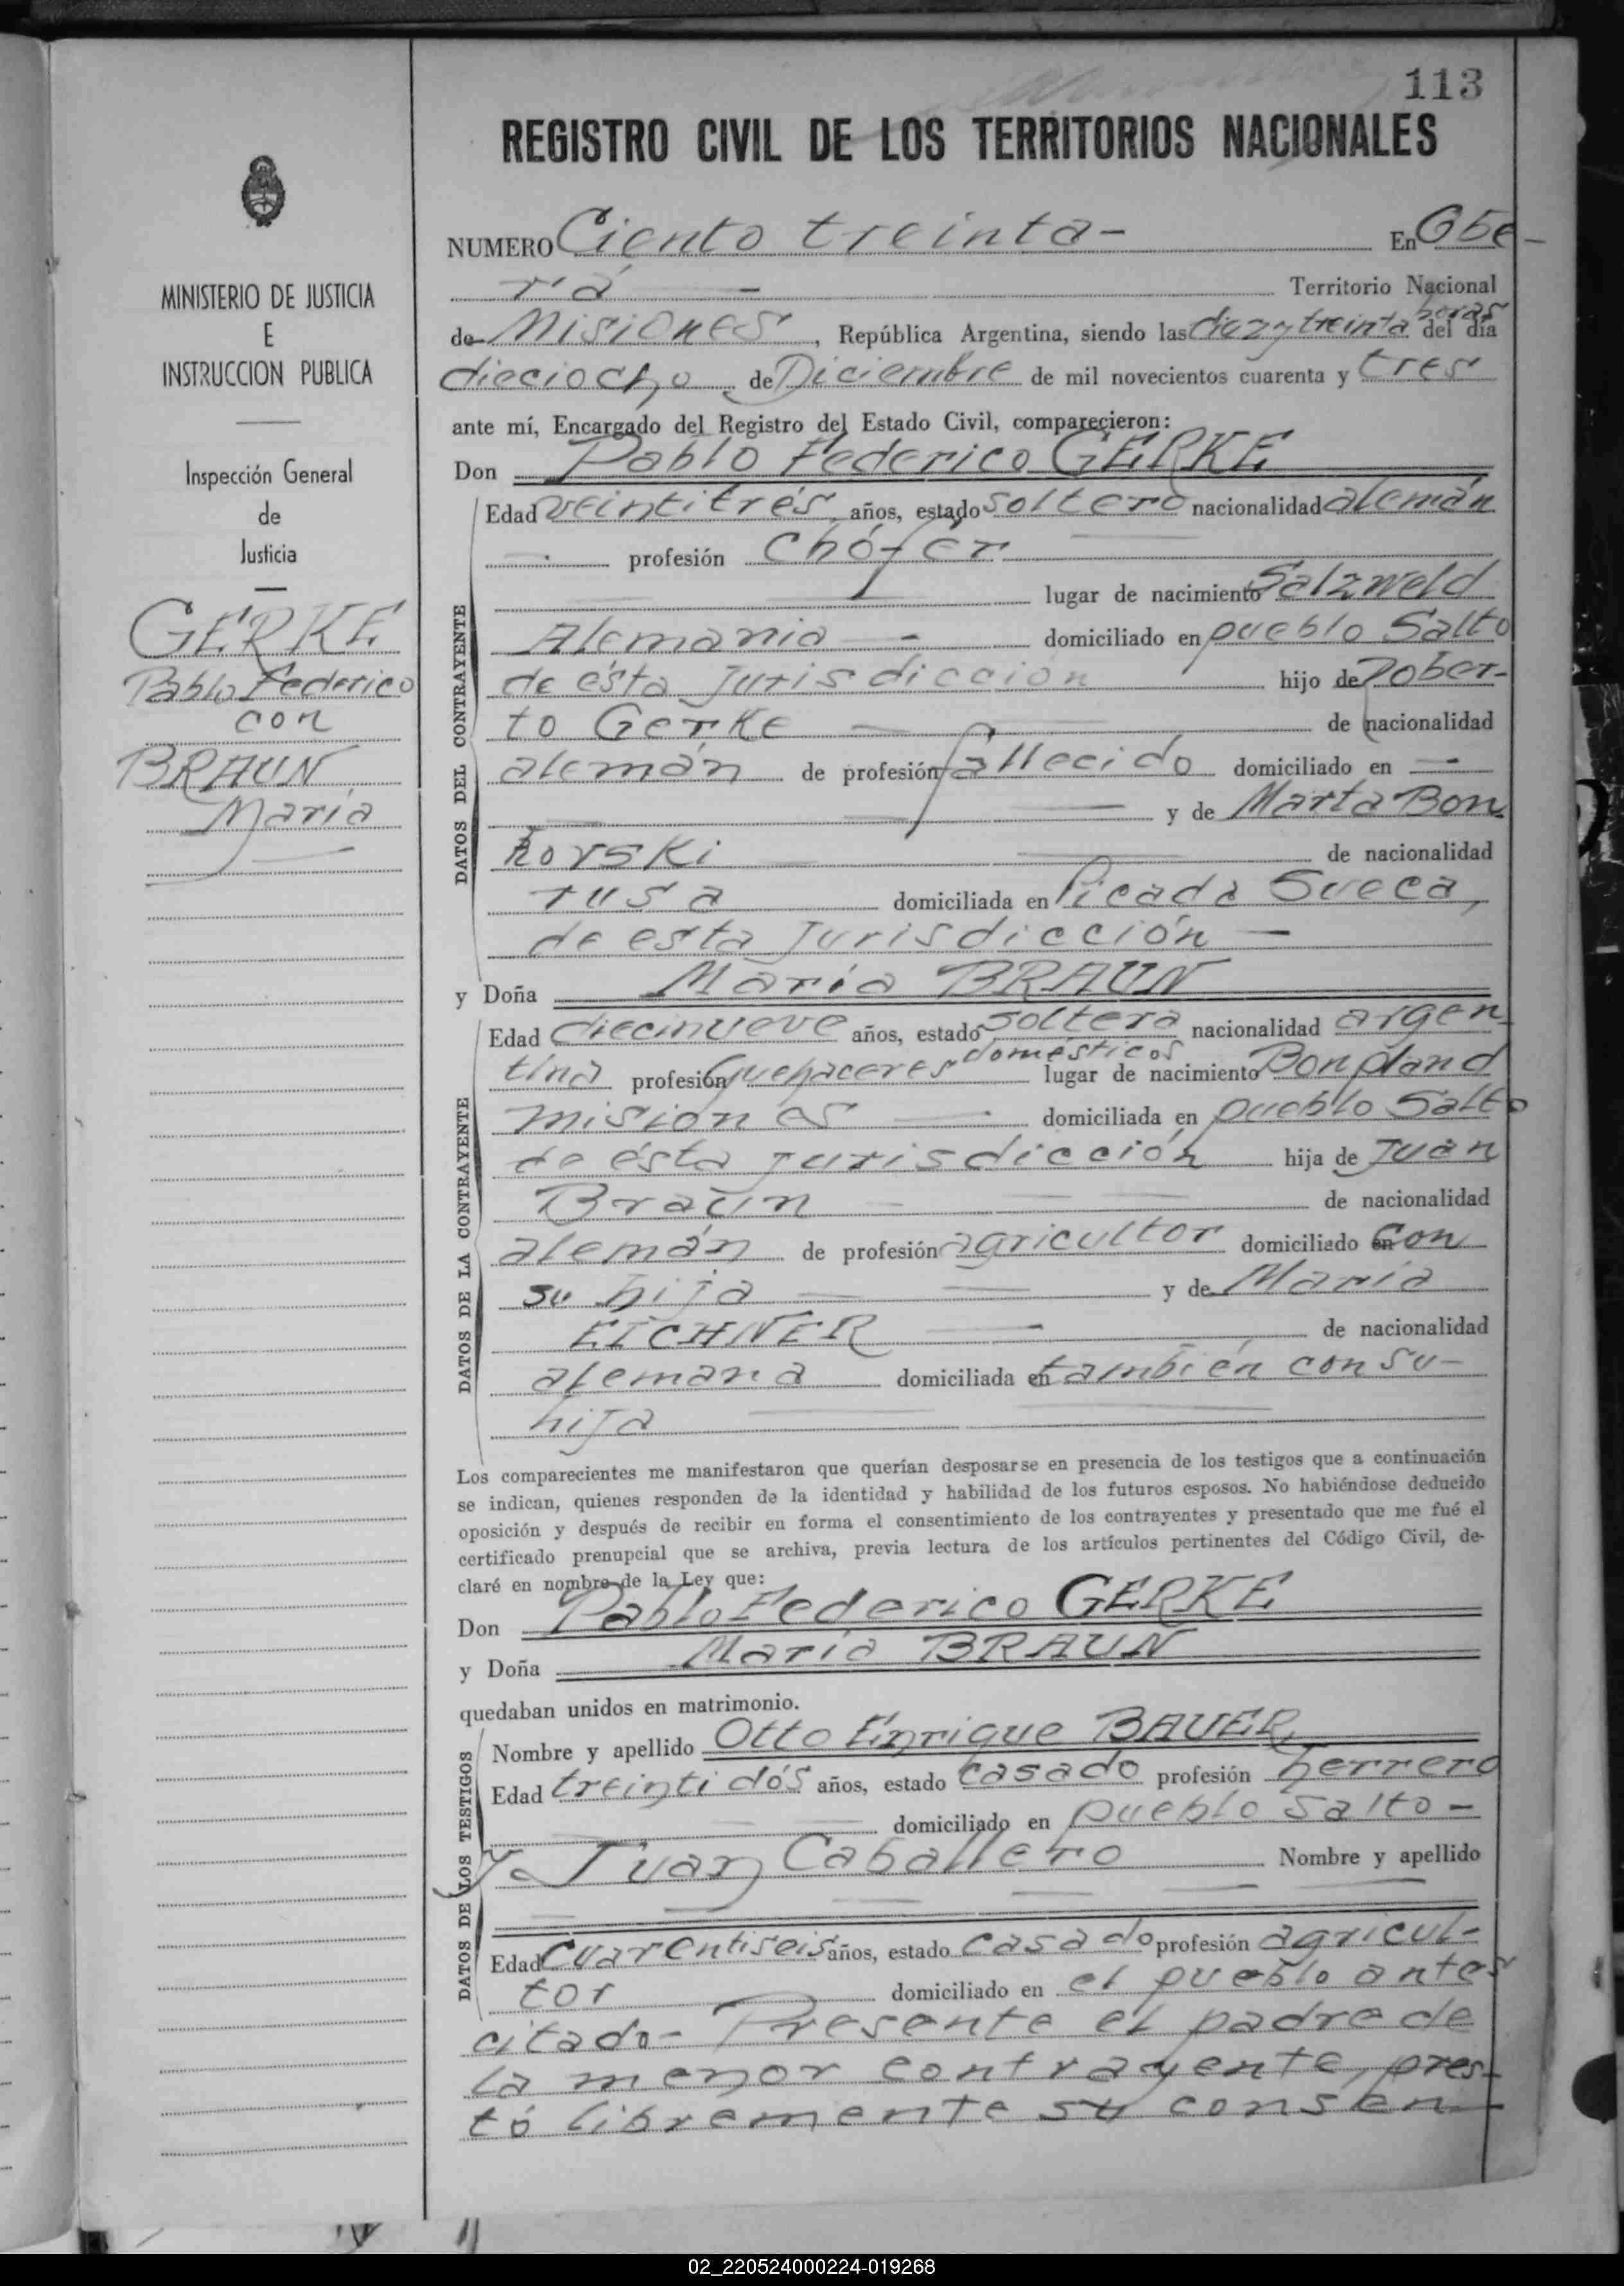 113
REGISTRO CIVIL DE LOS TERRITORIOS NACIONALES
MINISTERIO DE JUSTICIA
E
INSTRUCCION PUBLICA
Inspección General
de
Justicia
GERKE
Pablo Federico
con
BRAUN
María
NUMERO Ciento treinta- En Obe-
rá - Territorio Nacional
de Misiones, República Argentina, siendo las diez y treinta horas del día
dieciocho de Diciembre de mil novecientos cuarenta y tres
ante mí, Encargado del Registro del Estado Civil, comparecieron:
Don Pablo Federico GERKE
DATOS DEL CONTRAYENTE
Edad veintitrés años, estado soltero nacionalidad alemán
profesión chófer
lugar de nacimiento Salzweld
Alemania - domiciliado en pueblo Salto
de ésta Jurisdicción hijo de Rober-
to Gerke de nacionalidad
alemán de profesión fallecido domiciliado en -
y de Marta Bon
korski de nacionalidad
rusa domiciliada en Picada Sueca,
de esta Jurisdicción -
y Doña María BRAUN
DATOS DE LA CONTRAYENTE
Edad diecinueve años, estado soltera nacionalidad argen-
tina profesión quehaceres domésticos lugar de nacimiento Bonpland
misiones domiciliada en pueblo Salto
de ésta jurisdicción hija de Juan
Braun de nacionalidad
alemán de profesión agricultor domiciliado en con
su hija y de María
EICHNER de nacionalidad
alemana domiciliada en también con su-
hija
Los comparecientes me manifestaron que querían desposarse en presencia de los testigos que a continuación
se indican, quienes responden de la identidad y habilidad de los futuros esposos. No habiéndose deducido
oposición y después de recibir en forma el consentimiento de los contrayentes y presentado que me fué el
certificado prenupcial que se archiva, previa lectura de los artículos pertinentes del Código Civil, de-
claré en nombre de la Ley que:
Don Pablo Federico GERKE
y Doña María BRAUN
quedaban unidos en matrimonio.
DATOS DE LOS TESTIGOS
Nombre y apellido Otto Enrique BAUER
Edad treintidós años, estado casado profesión herrero
domiciliado en pueblo Salto-
y Juan Caballero Nombre y apellido
Edad cuarentiseis años, estado casado profesión agricul-
tor domiciliado en el pueblo antes
citado- Presente el padre de
la menor contrayente, pres-
tó libremente su consen-
02_220524000224-019268